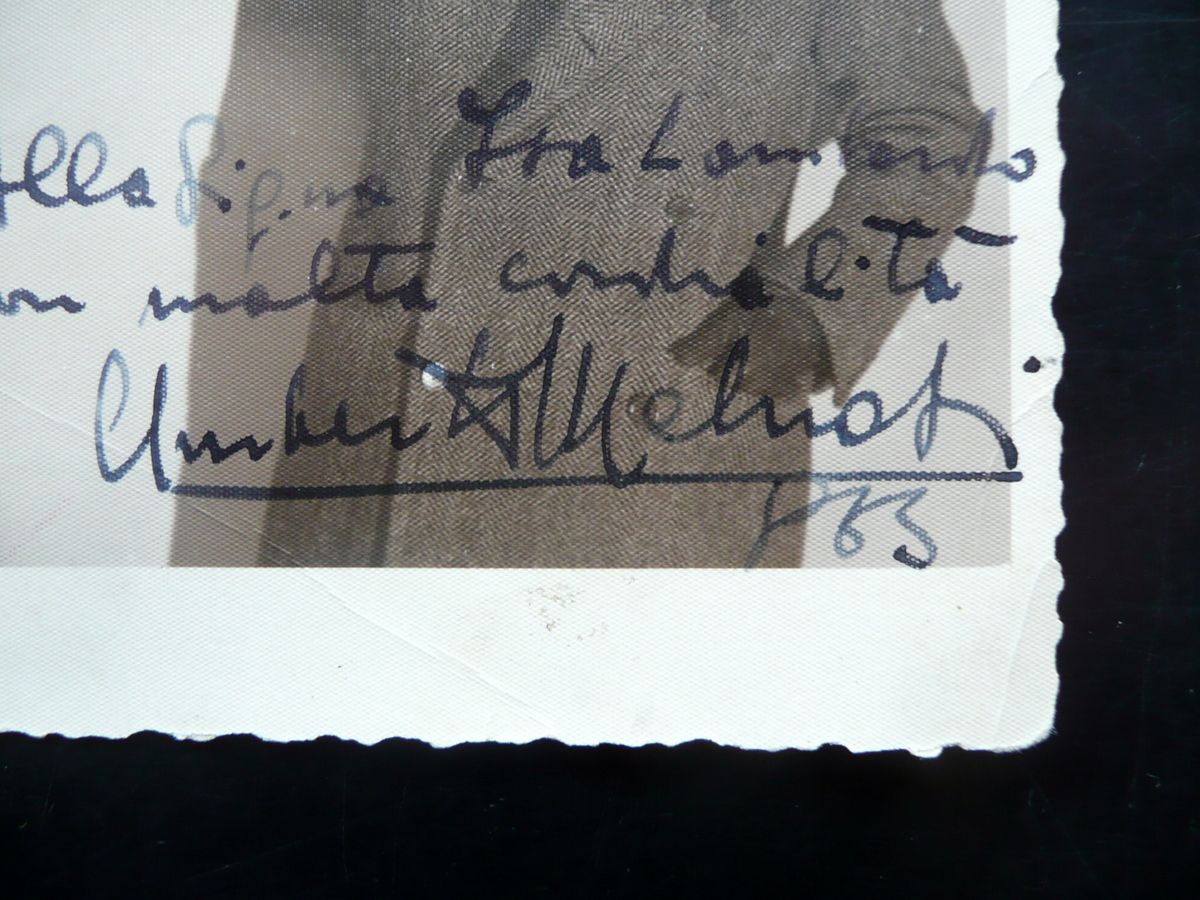 Alla Sig.na Isa Lombardo
on molta cordialità
Umberto Melnati